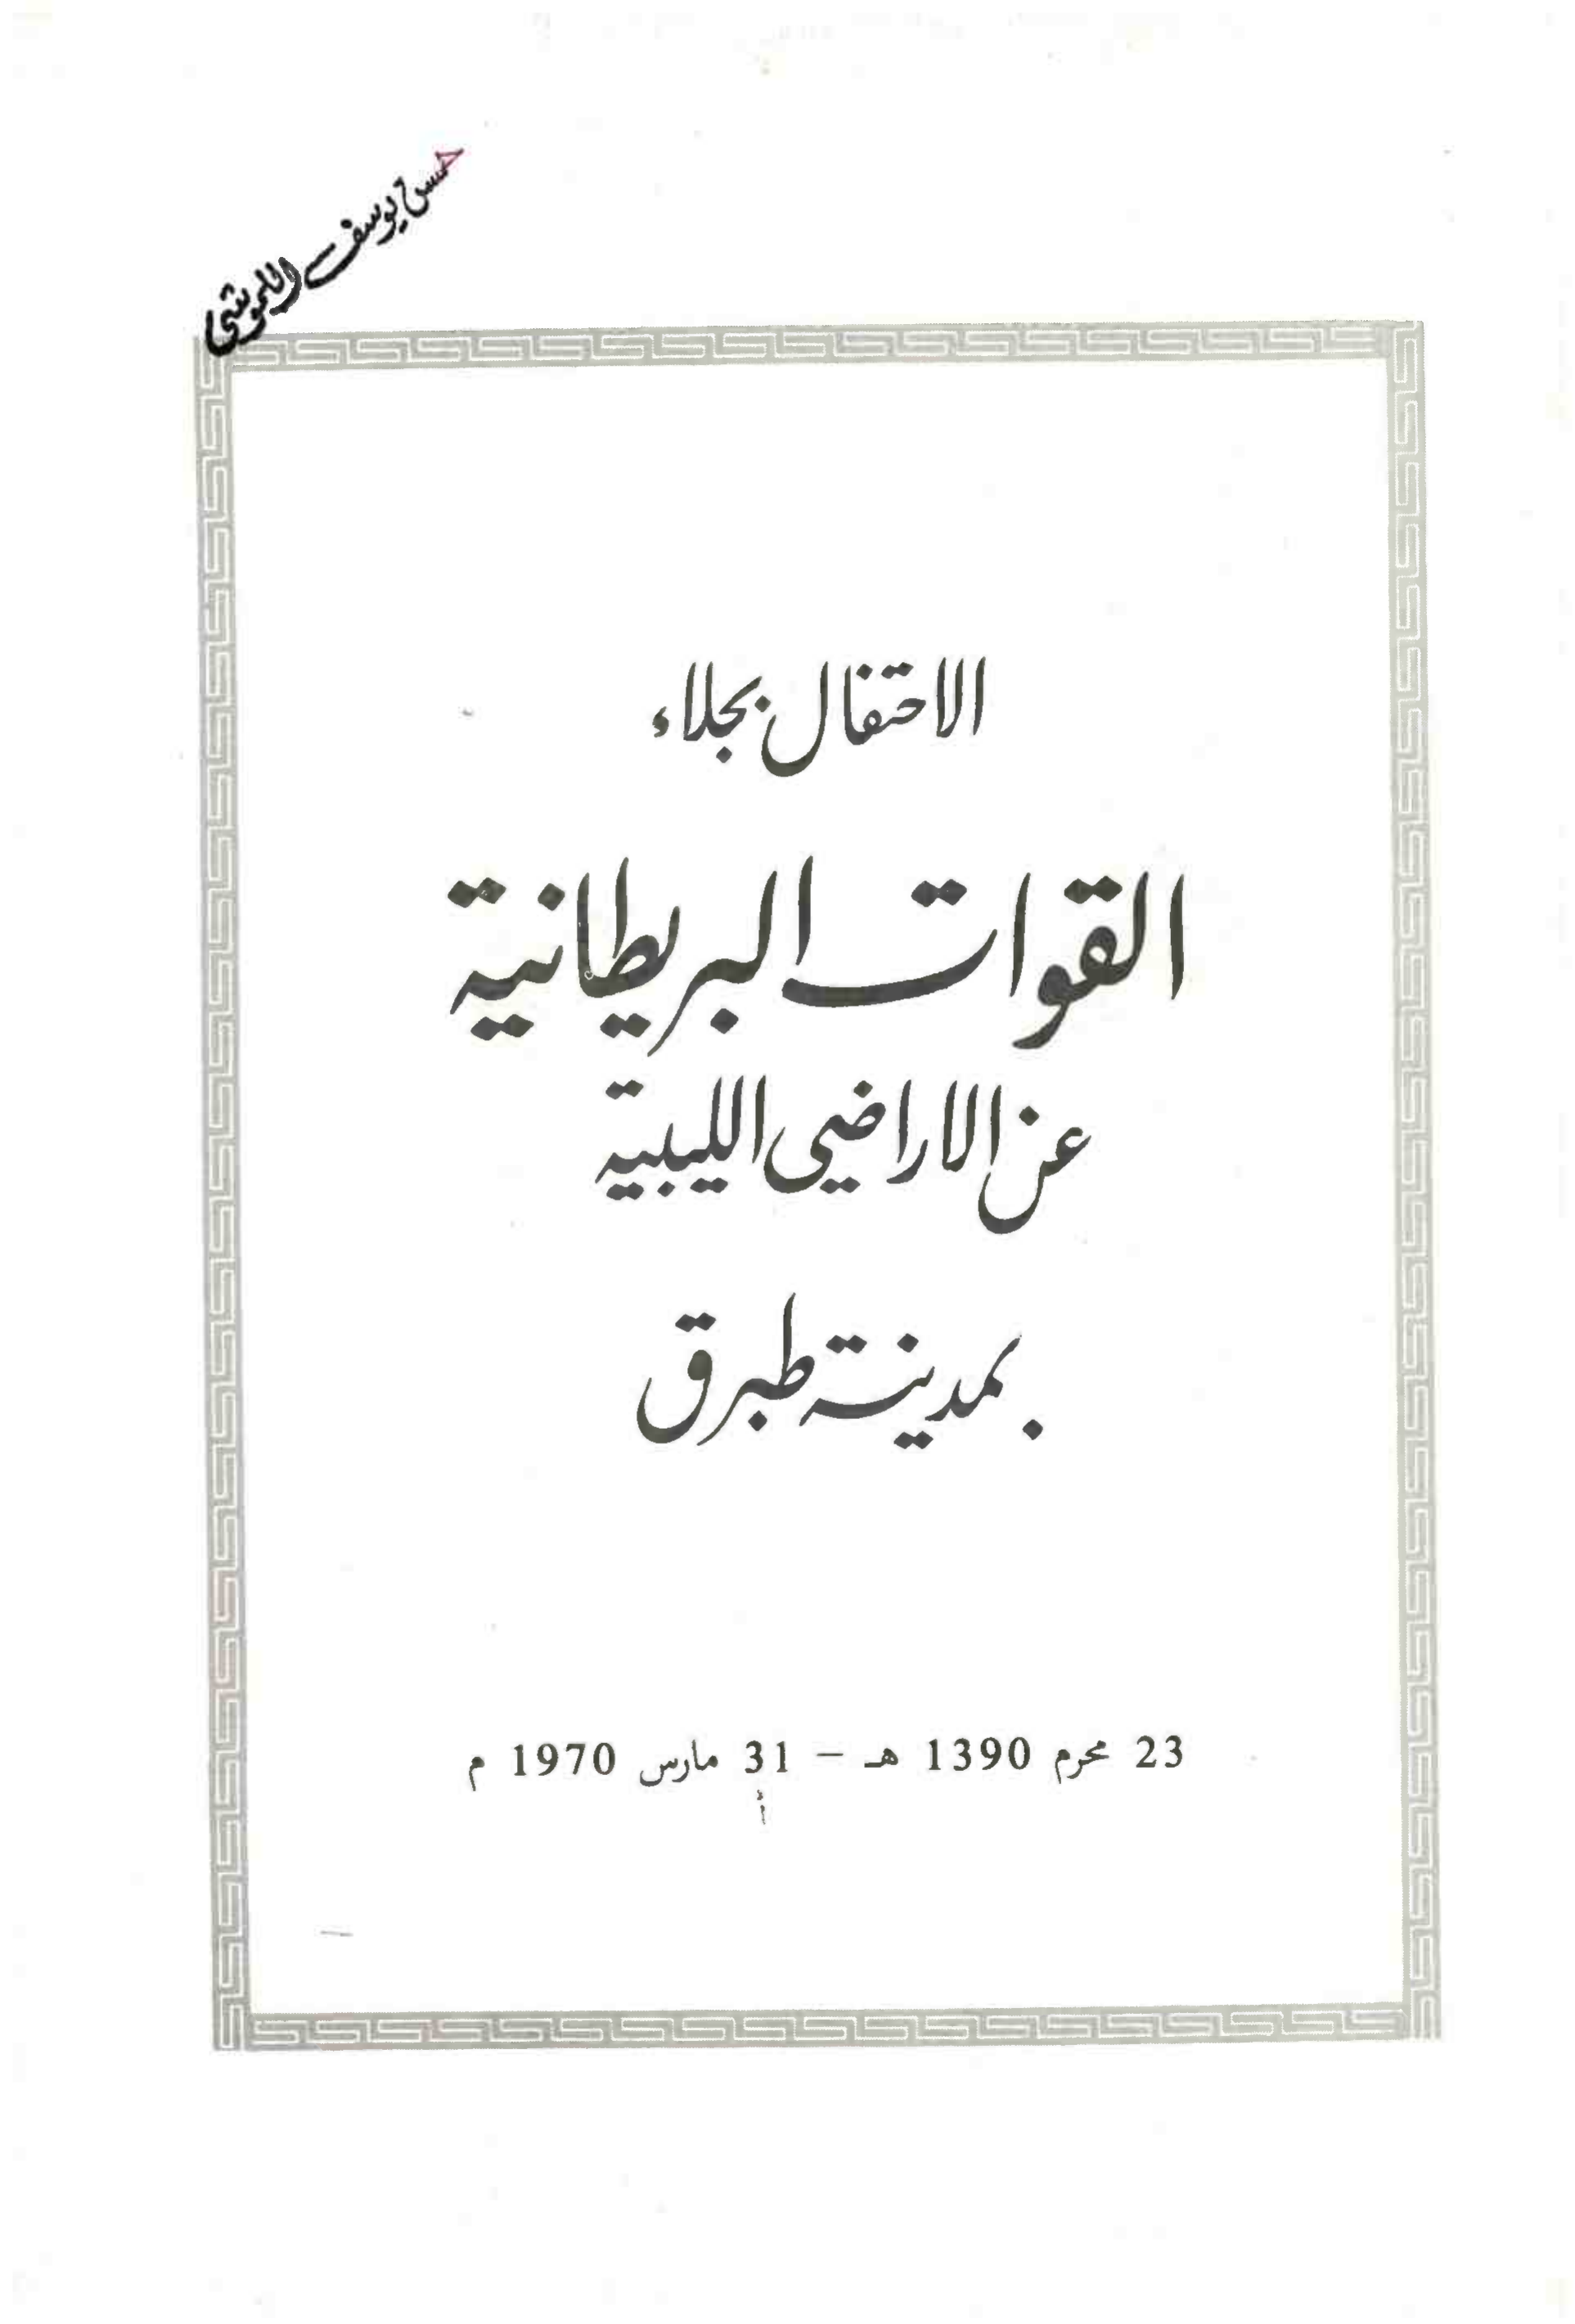 حسن يوسف
الاحتفال بجلاء
القوات البريطانية
عن الاراضي الليبية
بمدينة طبرق
23 محرم 1390 هـ – 31 مارس 1970 م